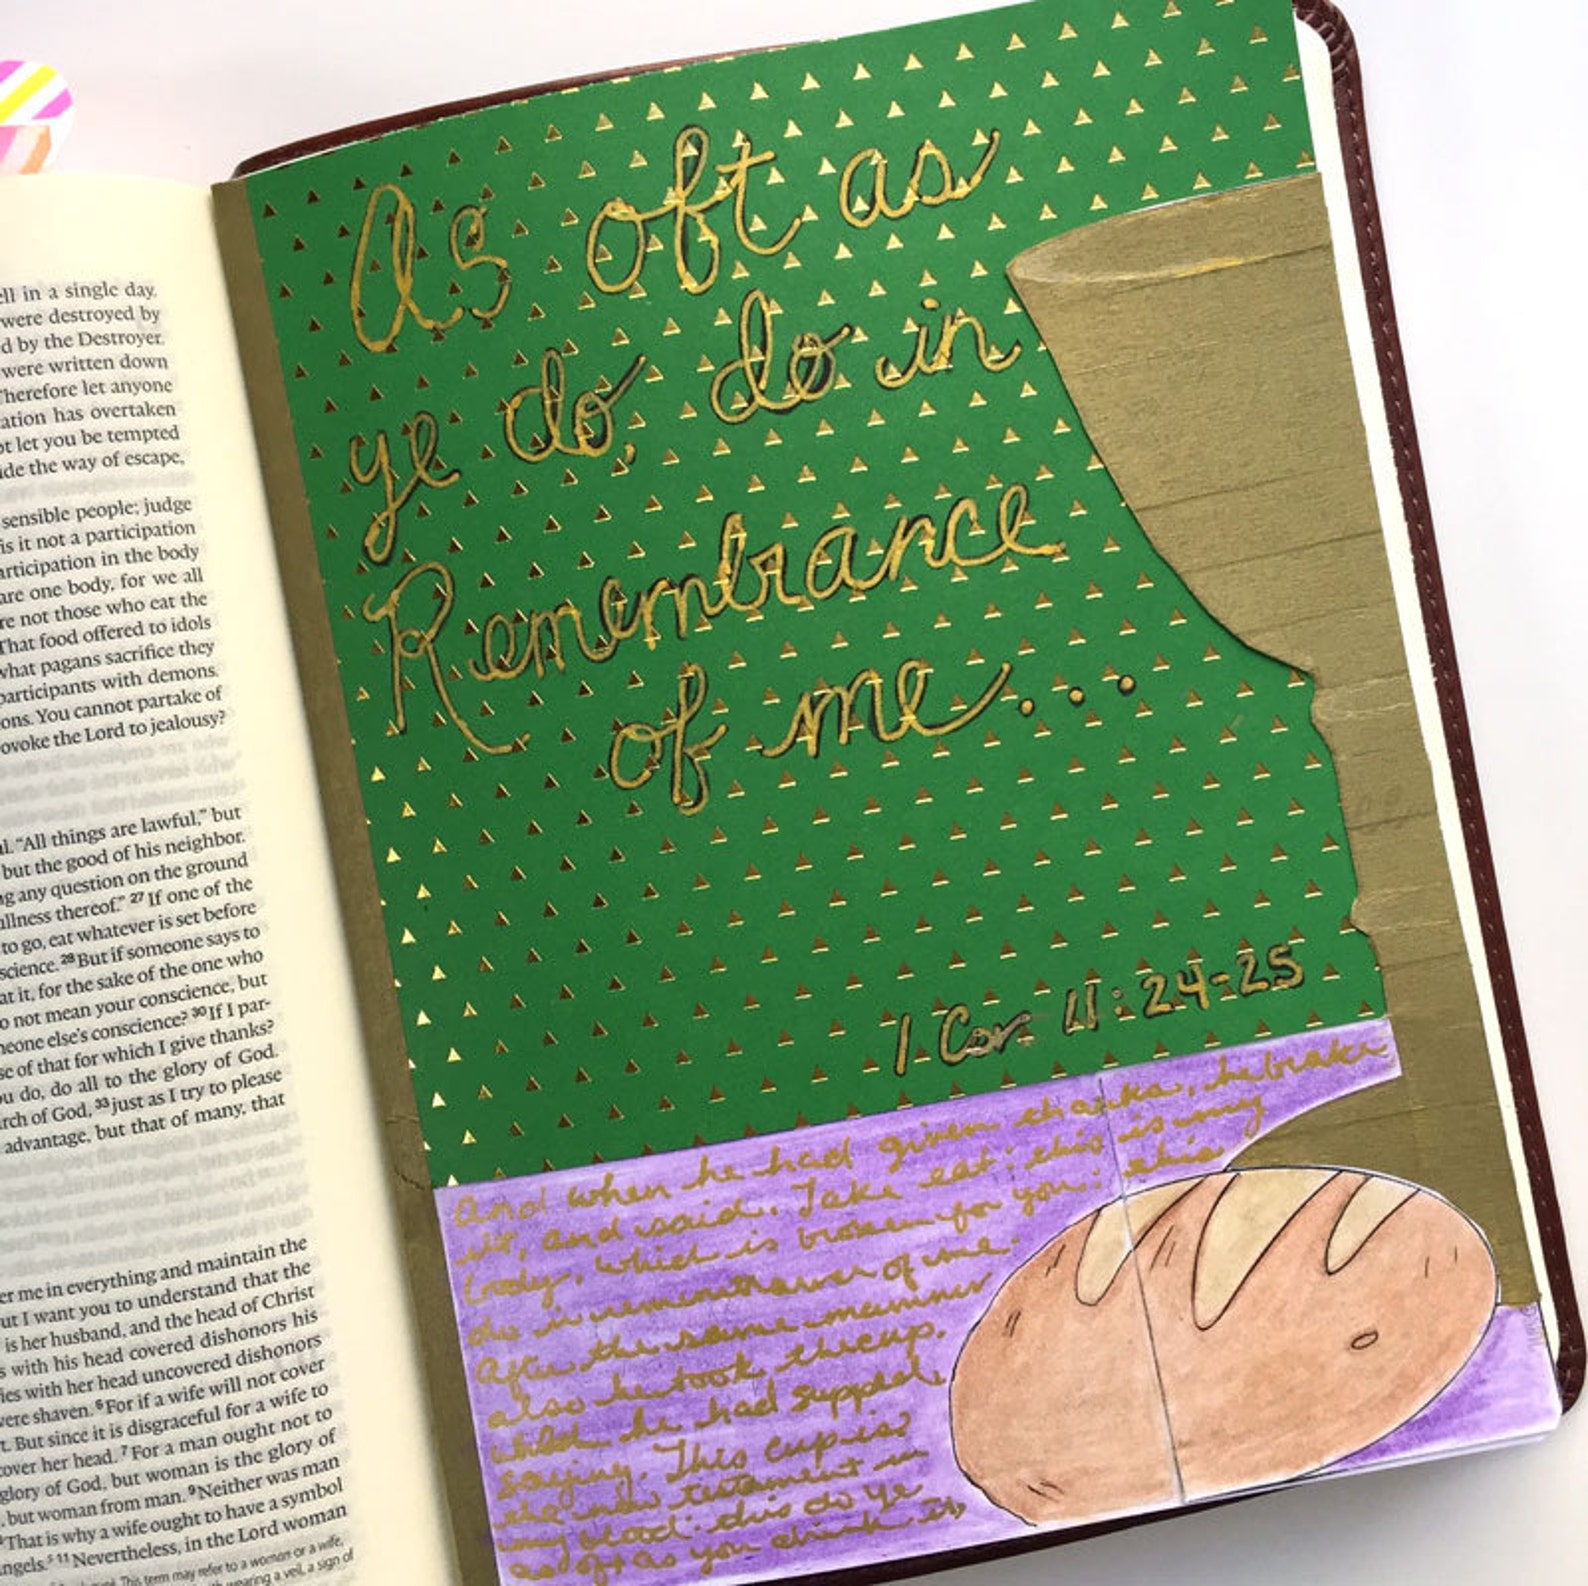 ell in a single day.
were destroyed by
d by the Destroyer.
were written down
Therefore let anyone
ation has overtaken
ot let you be tempted
ide the way of escape,
sensible people; judge
is it not a participation
articipation in the body
are one body, for we all
re not those who eat the
That food offered to idols
what pagans sacrifice they
participants with demons.
ons. You cannot partake of
ovoke the Lord to jealousy?
ul. “All things are lawful,” but
but the good of his neighbor.
ng any question on the ground
ullness thereof.” 27 If one of the
to go, eat whatever is set before
science. 28 But if someone says to
at it, for the sake of the one who
o not mean your conscience, but
neone else's conscience? 30 If I par-
se of that for which I give thanks?
ou do, do all to the glory of God.
rch of God, 33 just as I try to please
advantage, but that of many, that
er me in everything and maintain the
ut I want you to understand that the
is her husband, and the head of Christ
s with his head covered dishonors his
ies with her head uncovered dishonors
vere shaven. 6 For if a wife will not cover
t. But since it is disgraceful for a wife to
cover her head. 7 For a man ought not to
glory of God, but woman is the glory of
, but woman from man. 9 Neither was man
That is why a wife ought to have a symbol
ngels. 5 11 Nevertheless, in the Lord woman
This term may refer to a woman or a wife,
wearing a veil, a sign of
As oft as
ye do, do in
Remembrance
of me...
1 Cor. 11:24-25
And when he had given thanks, he brake
it, and said, Take eat: this is my
body, which is broken for you: this
do in remembrance of me.
After the same manner
also he took the cup,
when he had supped,
saying, This cup is
the new testament in
my blood: this do ye
as oft as you drink it,